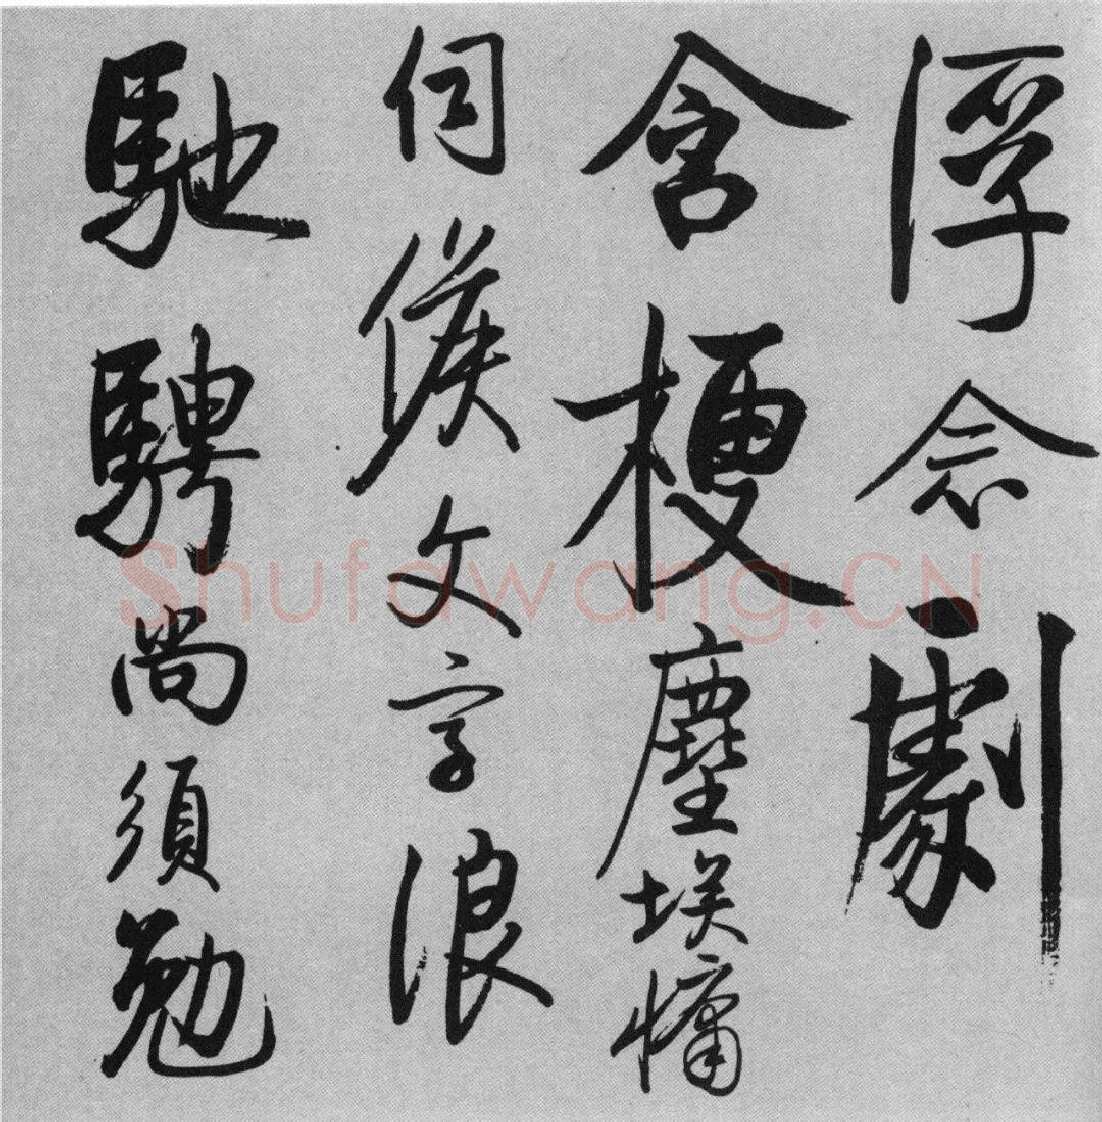 浮念劇
含梗塵埃慵
伺候文字浪
馳騁尚須勉
Shufawang.CN